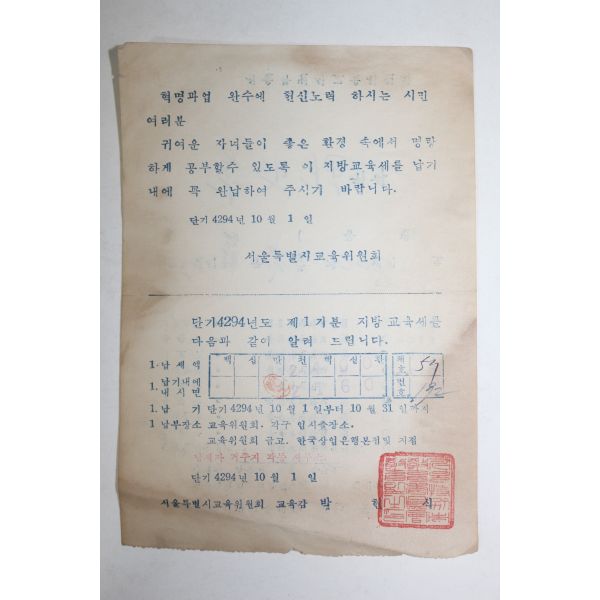 혁명과업 완수에 헌신노력 하시는 시민
여러분
귀여운 자녀들이 좋은 환경 속에서 명랑
하게 공부할수 있도록 이 지방교육세를 납기
내에 꼭 완납하여 주시기 바랍니다.
단기 4294년 10월 1일
서울특별시교육위원회
단기4294년도 제1기분 지방교육세를
다음과 같이 알려 드립니다.
1. 납세액 백 십 만 천 백 십 원
1. 납기내에 내시면
번호
1. 납 기 단기 4294년 10월 1일부터 10월 31일까지
1 납부장소 교육위원회, 각구 임시출장소,
교육위원회 금고, 한국상업은행본점및 지점
단기 4294년 10월 1일
서울특별시교육위원회 교육감 박 현 식